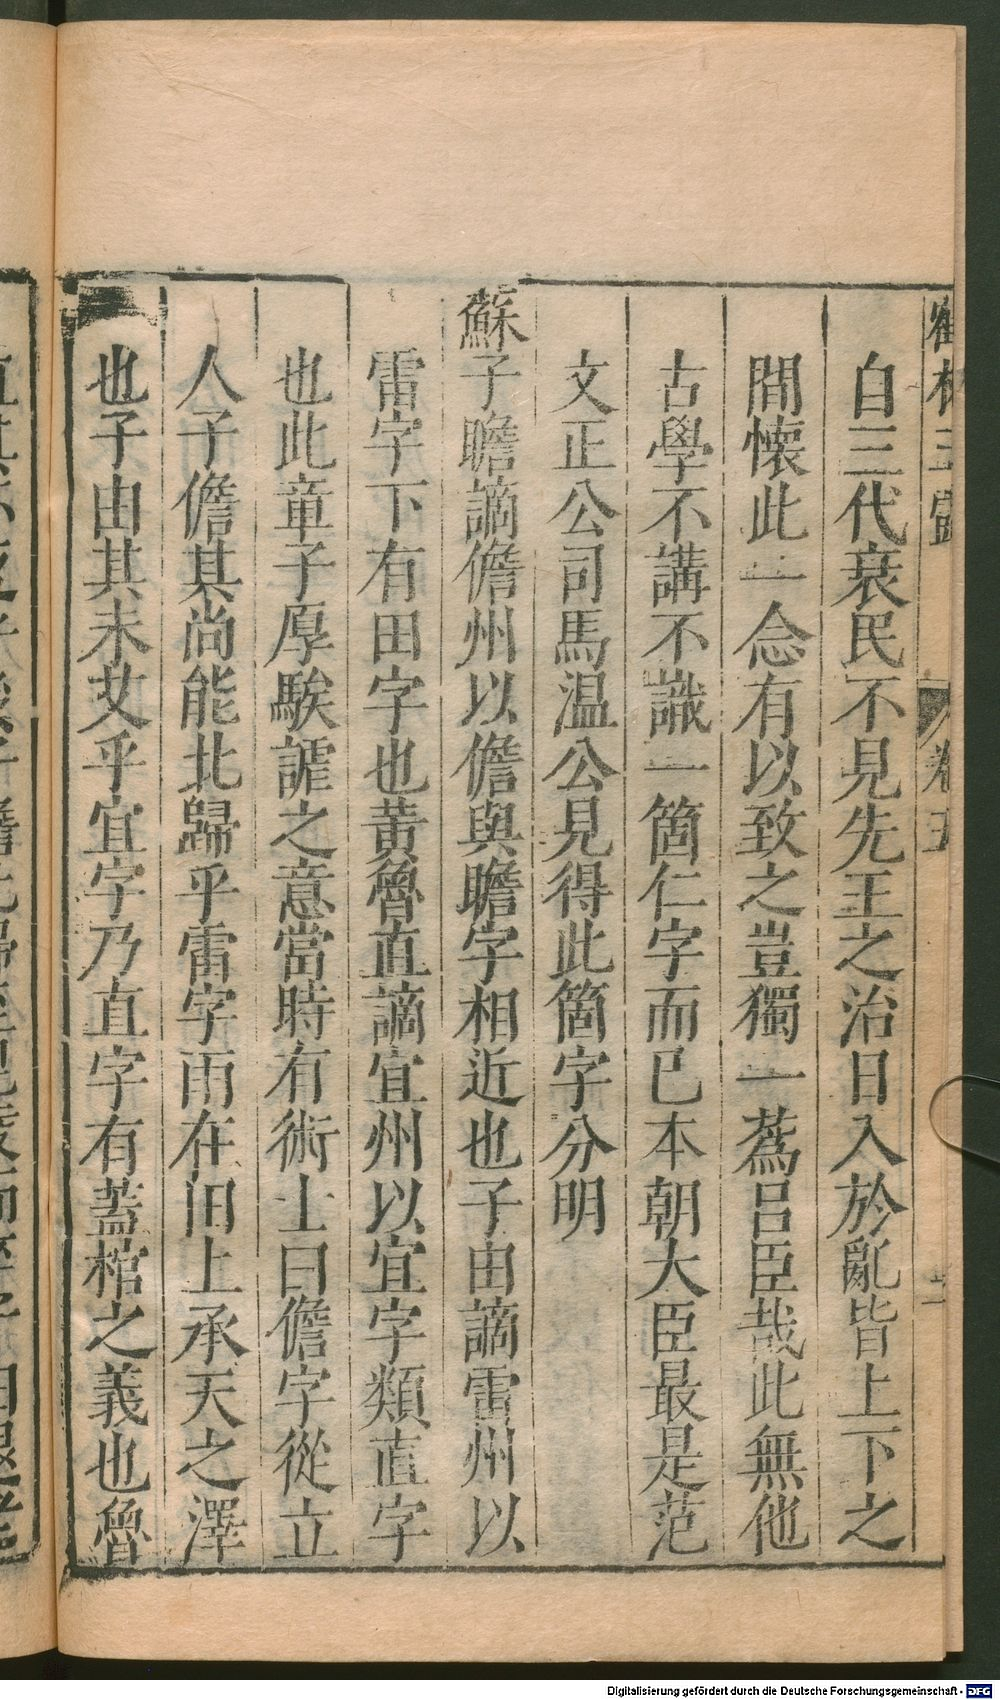 自三代衰民不見先王之治日入於亂皆上下之
間懷此一念有以致之豈獨一蔿呂臣哉此無他
古學不講不識一箇仁字而已本朝大臣最是范
文正公司馬温公見得此箇字分明
蘇子瞻謫儋州以儋與瞻字相近也子由謫雷州以
雷字下有田字也黃魯直謫宜州以宜字類直字
也此章子厚騃謔之意當時有術士曰儋字從立
人子儋其尚能北歸乎雷字雨在田上承天之澤
也子由其未艾乎宜字乃直字有蓋棺之義也魯
卷五
Digitalisierung gefördert durch die Deutsche Forschungsgemeinschaft - DFG